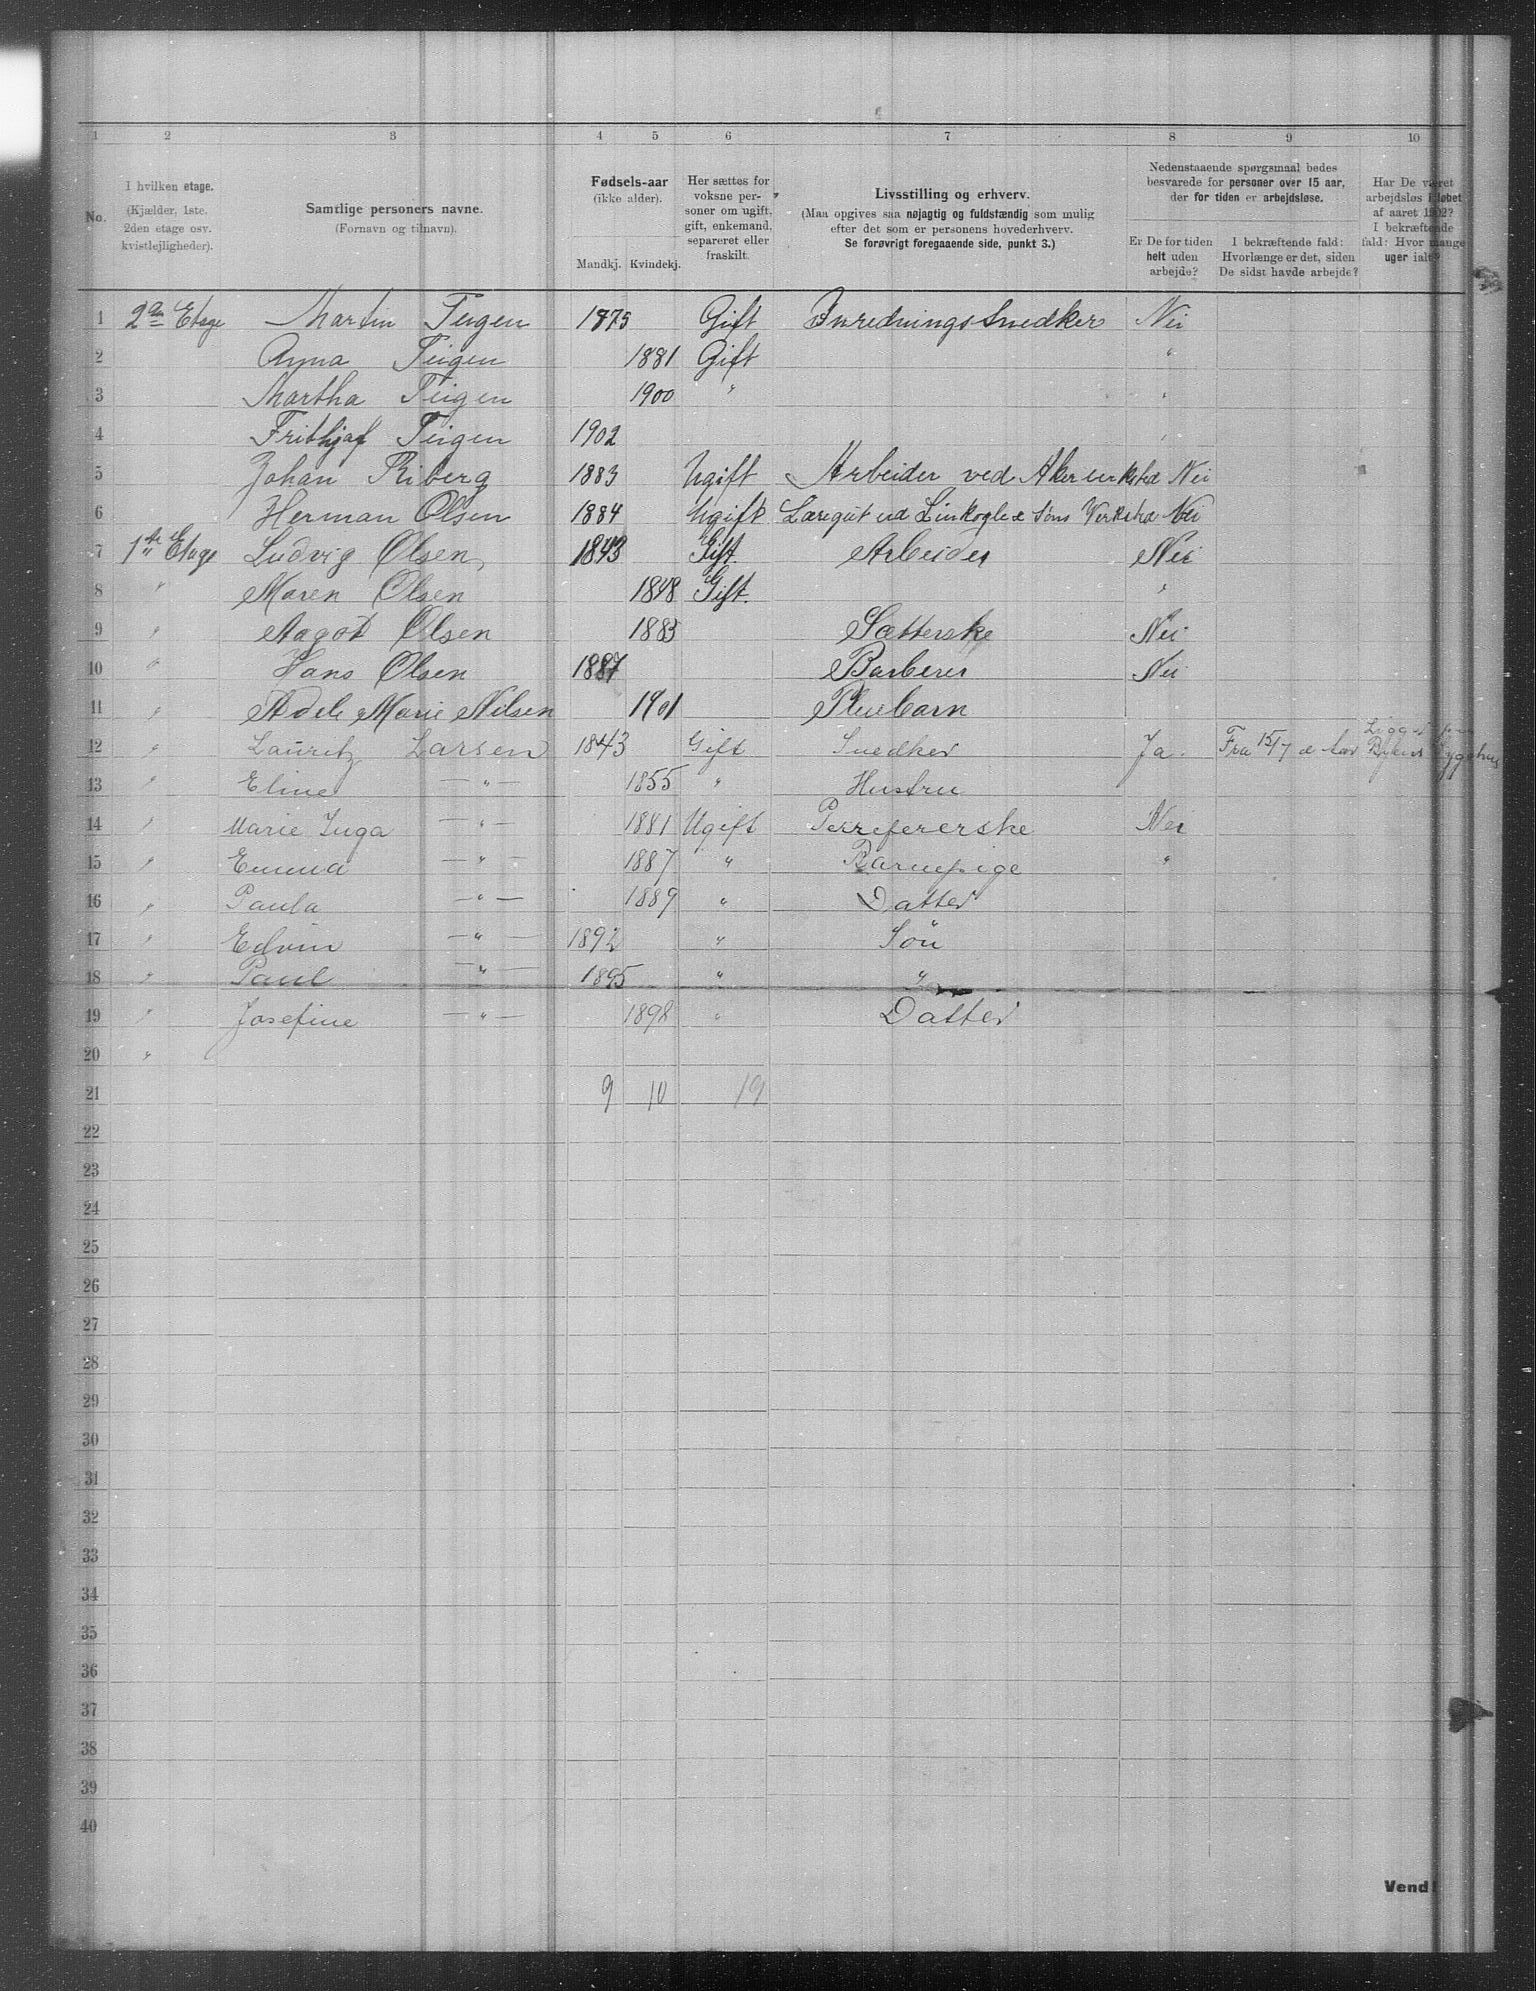 1 2 3 4 5 6 7 8 9 10
No.
I hvilken etage.
(Kjælder, 1ste.
2den etage osv.
kvistlejligheder).
Samtlige personers navne.
(Fornavn og tilnavn).
Fødsels-aar
(ikke alder).
Mandkj. Kvindekj.
Her sættes for
voksne per-
soner om ugift,
gift, enkemand,
separeret eller
fraskilt.
Livsstilling og erhverv.
(Maa opgives saa nøjagtig og fuldstændig som mulig
efter det som er personens hovederhverv.
Se forøvrigt foregaaende side, punkt 3.)
Nedenstaaende spørgsmaal bedes
besvarede for personer over 15 aar,
der for tiden er arbejdsløse.
Er De for tiden
helt uden
arbejde?
I bekræftende fald:
Hvorlænge er det, siden
De sidst havde arbejde?
Har De været
arbejdsløs i løbet
af aaret 1902?
I bekræftende
fald: Hvor mange
uger ialt?
1 2den Etage Martin Teigen 1875 Gift Inrednings Snedker Nei
2 Anna Teigen 1881 Gift "
3 Martha Teigen 1900 " "
4 Frithjof Teigen 1902 "
5 Johan Riberg 1883 Ugift Arbeider ved Aker Nei
6 Herman Olsen 1884 Ugift Læregut Søns Nei
7 1ste Etage Ludvig Olsen 1843 Gift. Arbeider Nei
8 " Maren Olsen 1848 Gift. "
9 " Aagot Olsen 1883 Sætterske Nei
10 " Hans Olsen 1887 Barberer Nei
11 " Adele Marie Nilsen 1901 Pleiebarn
12 " Lauritz Larsen 1843 Gift Snedker Ja. Fra 15/7 Sygehus
13 " Eline — " — 1855 " Hustru
14 " Marie Inga — " — 1881 Ugift Nei
15 " Emma — " — 1887 " Barnepige "
16 " Paula — " — 1889 " Datter
17 " Edvin — " — 1892 " Søn
18 " Paul — " — 1895 " "
19 " Josefine — " — 1898 " Datter
20 "
21 9 10 19
22
23
24
25
26
27
28
29
30
31
32
33
34
35
36
37
38
39
40
Vend!